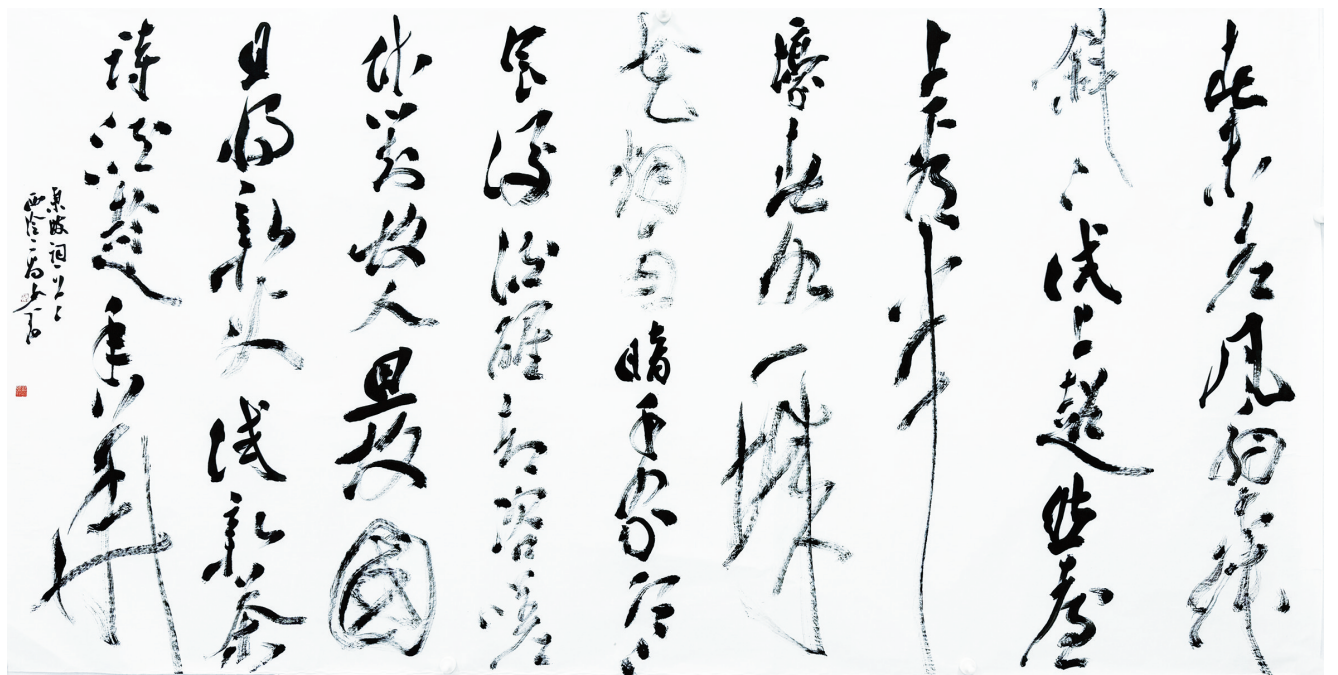 春未老風細柳
斜〻試上超然臺
上看半
壕春水一城
花烟雨暗千家寒
食後酒醒却咨嗟
休對故人思故國
且將新火試新茶
詩酒趁年華
東坡詞一首
西泠